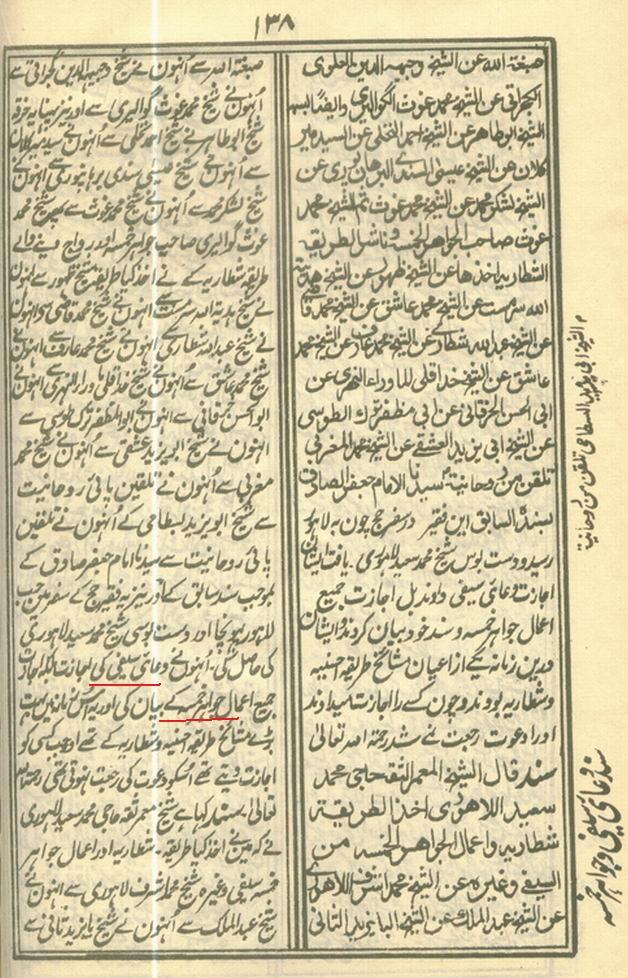 ۱۳۸
صبغة الله عن الشيخ وجيه الدين العلوى
الكجراتى عن الشيخ محمد غوث الگواليرى وايضا لبسه
الشيخ ابو طاهر عن الشيخ احمد النخلى عن السيد مير
كلان عن الشيخ عيسى السندى البرهانپورى عن
الشيخ لشكر محمد عن الشيخ محمد غوث ثم الشيخ محمد
غوث صاحب الجواهر الخمسه وناشر الطريقه
الشطاريه اخذها عن الشيخ ظهور عن الشيخ هدية
الله سرمست عن الشيخ محمد قاضى
عن الشيخ عبد الله شطارى عن الشيخ محمد عارف عن الشيخ محمد
عاشق عن الشيخ خدا قلى الماوراء النهرى عن
ابى الحسن الخرقانى عن ابى مظفر ترك الطوسى
عن الشيخ ابى يزيد العشقى عن الشيخ محمد المغربى
تلقن من روحانية سيدنا الامام جعفر الصادق
بسنده السابق اين فقير در سفر حج چون به لاهور
رسيد و دست بوس شيخ محمد سعيد لاهورى دريافت ايشان
اجازت دعاى سيفى دادند بل اجازت جميع
اعمال جواهر خمسه و سند خود بيان كردند و ايشان
درين زمانه يكے از اعيان مشائخ طريقه احسنيه
و شطاريه بودند و چون كسے را اجازت ميدادند
او را دعوت رجعت نمے شد رحمة الله تعالى
سند قال الشيخ المعمر الثقة حاجى محمد
سعيد اللاهورى اخذت الطريقة
شطاريه واعمال الجواهر الخمسه من
السيفى وغيره عن الشيخ محمد اشرف اللاهورى
عن الشيخ عبد الملك عن الشيخ البايزيد الثانى
صبغۃ اللہ سے اُنہون نے شیخ وجیہ الدین گجراتی سے
اُنہون نے شیخ محمد غوث گوالیری سے اور نیز پہنا یہ خرقہ
شیخ ابو طاہر نے شیخ احمد نخلی سے اُنہون نے سید میر کلان
سے اُنہون نے شیخ عیسی سندی برہانپوری سے اُنہون نے
شیخ لشکر محمد سے اُنہون نے شیخ محمد غوث سے پھر شیخ محمد
غوث گوالیری صاحب جواہر خمسہ اور رواج دینے والے
طریقہ شطاریہ کے نے اخذ کیا طریقہ شیخ ظہور سے اُنہون
نے شیخ ہدیۃ اللہ سرمست سے اُنہون نے شیخ محمد قاضی سے اُنہون
نے شیخ عبد اللہ شطاری سے اُنہون نے شیخ محمد عارف سے اُنہون نے
شیخ محمد عاشق سے اُنہون نے شیخ خدا قلی ماوراء النہری سے اُنہون نے
ابو الحسن خرقانی سے اُنہون نے ابو المظفر ترک طوسی سے
اُنہون نے شیخ ابو یزید عشقی سے اُنہون نے شیخ محمد
مغربی سے اُنہون نے تلقین پائی روحانیت
سے شیخ ابو یزید بسطامی کے اُنہون نے تلقین
پائی روحانیت سے سیدنا امام جعفر صادق کے
بموجب سند سابق کے اور نیز یہ فقیر حج کے سفر مین جب
لاہور پہونچا اور دست بوسی شیخ محمد سعید لاہوری
کی حاصل کی۔ اُنہون نے دعائے سیفی کی اجازت بلکہ اجازت
جمیع اعمال جواہر خمسہ کے بیان کی اور یہ اس زمانہ مین بہت
بڑے مشائخ طریقہ احسنیہ و شطاریہ کے تھے اور جب کسی کو
اجازت دیتے تھے اُسکو دعوت کی رجعت نہوتی تھی رحمۃ اللہ
تعالیٰ۔ سند کہا ہے شیخ معمر ثقہ حاجی محمد سعید لاہوری
نے کہ مین نے اخذ کیا طریقہ۔ شطاریہ اور اعمال جواہر
خمسہ سیفی وغیرہ شیخ محمد اشرف لاہوری سے اُنہون نے
شیخ عبد الملک سے اُنہون نے شیخ بایزید ثانی سے
م الشيخ ابى يزيد البسطامى تلقن من روحانية
سند دعاے سیفی و جواہر خمسہ